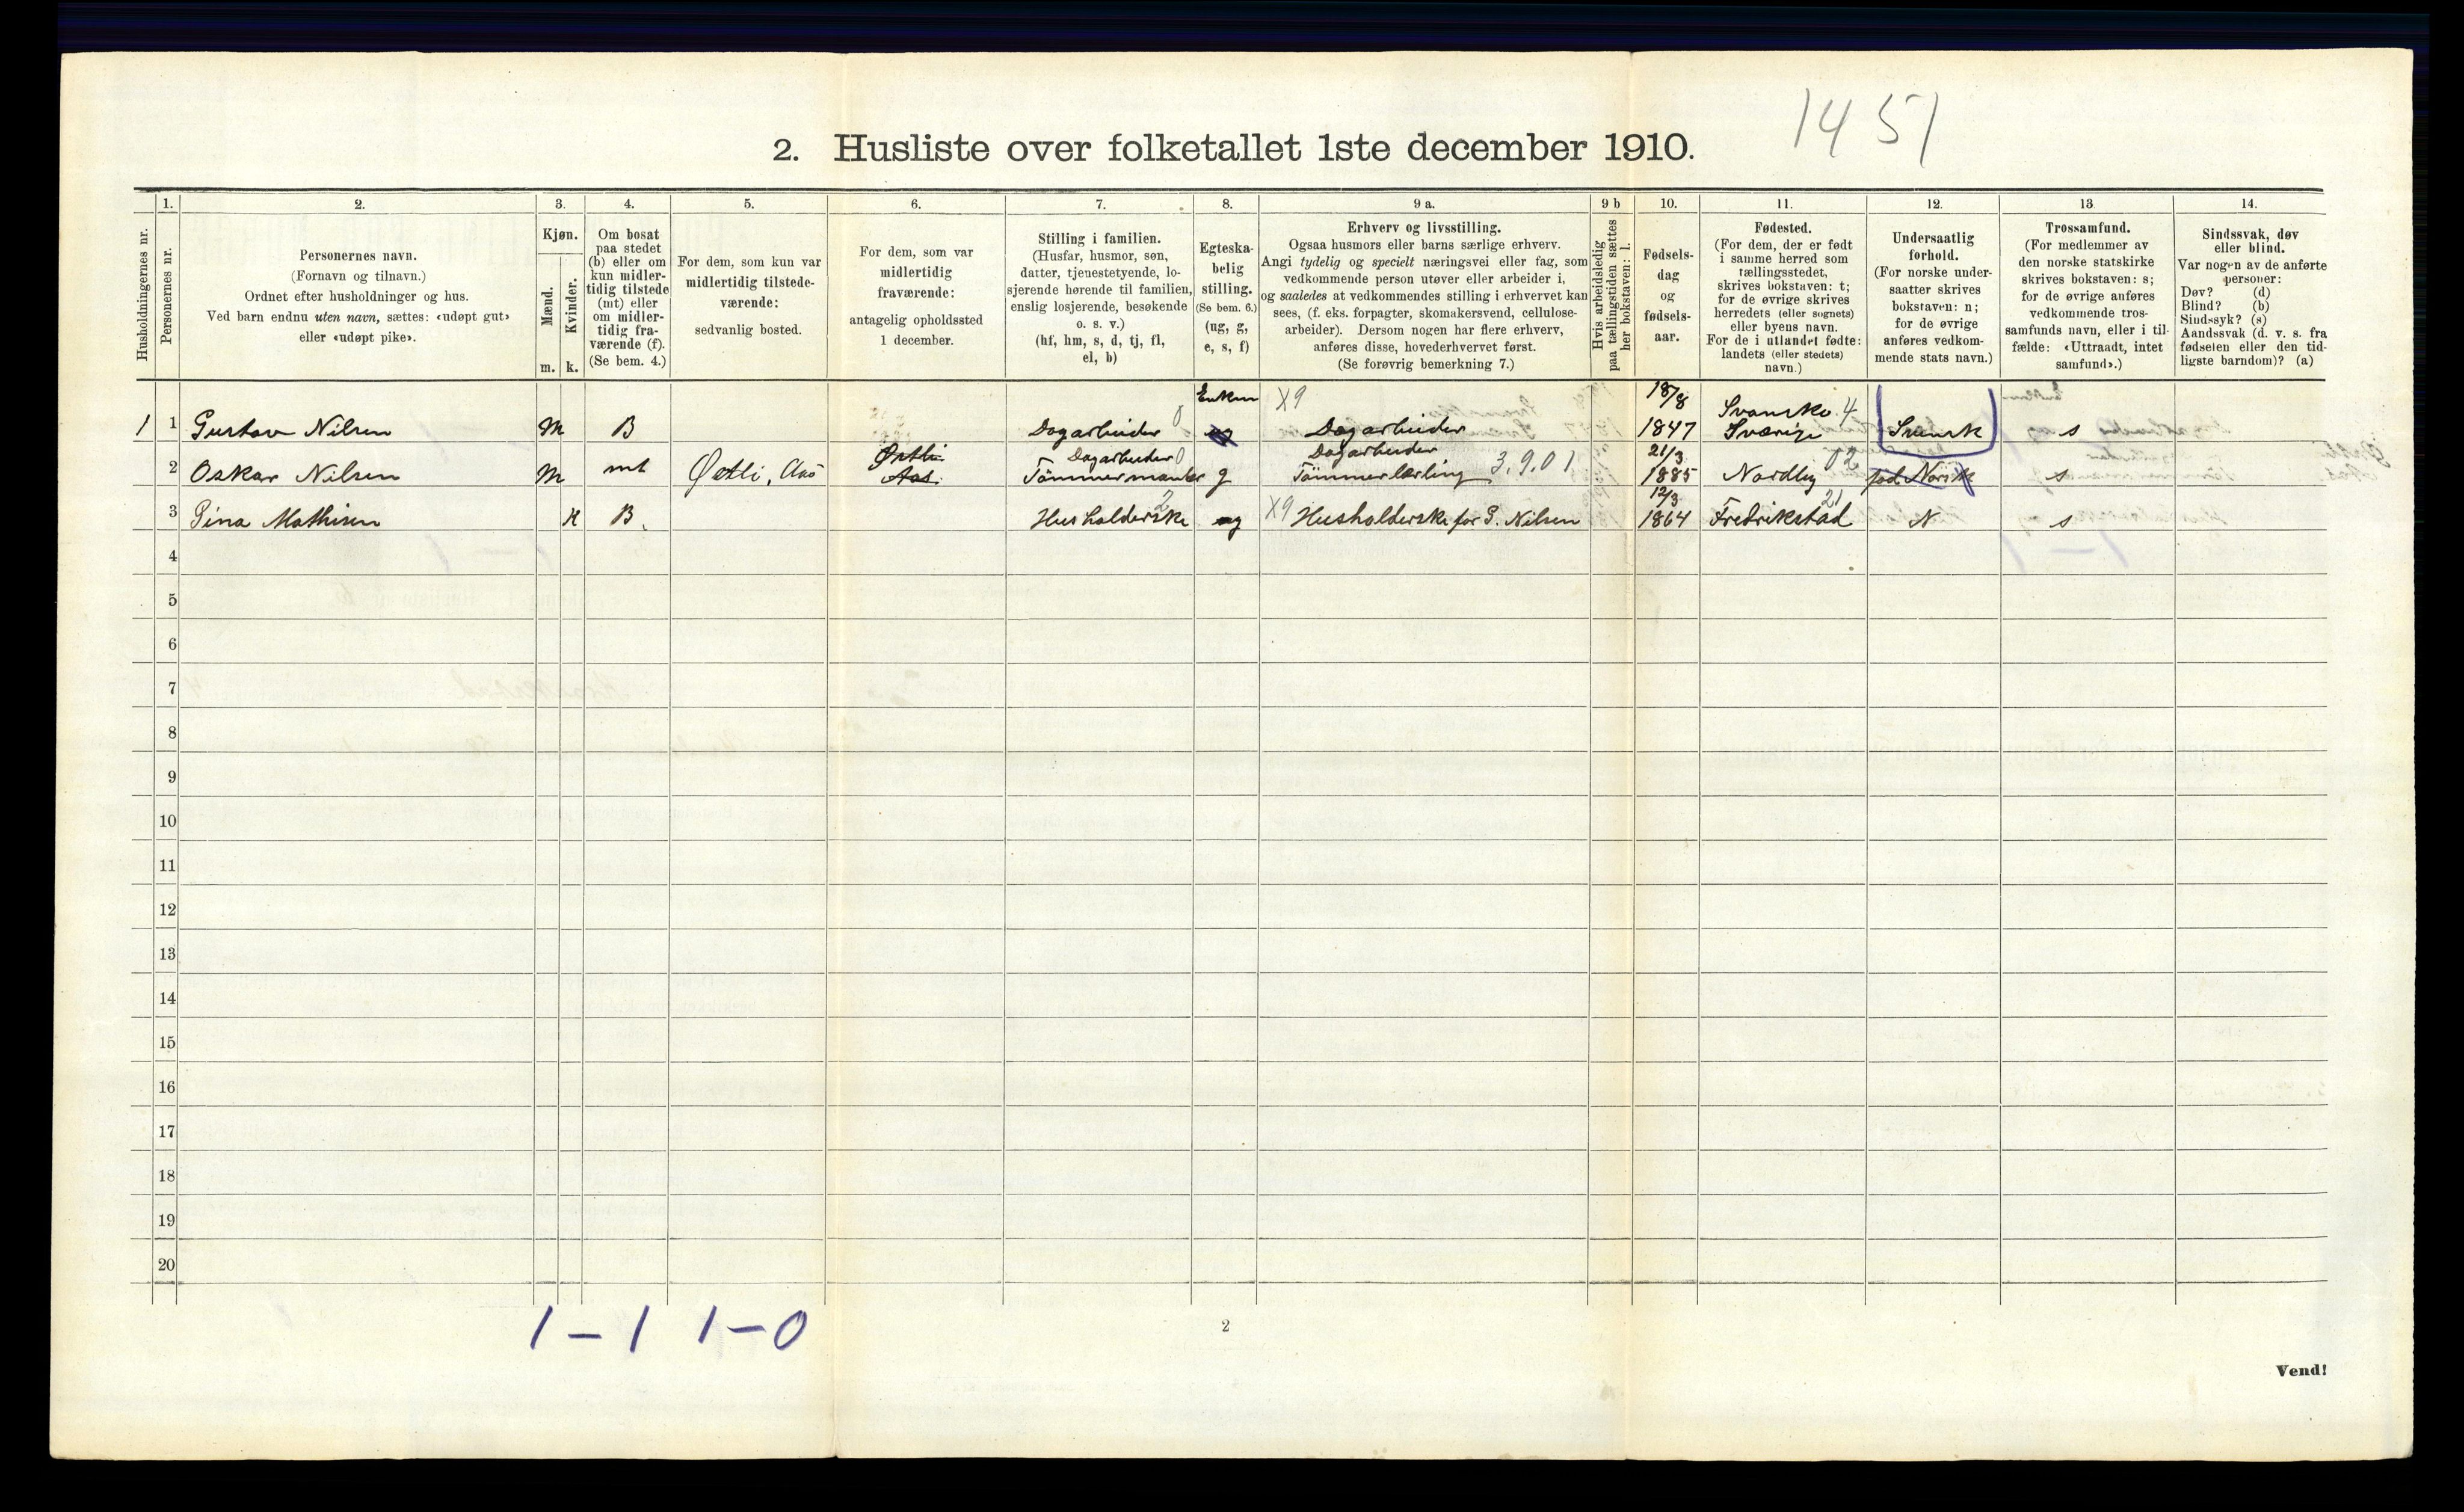 1451
2. Husliste over folketallet 1ste december 1910.
Husholdningernes nr.
1.
Personernes nr.
2.
Personernes navn.
(Fornavn og tilnavn.)
Ordnet efter husholdninger og hus.
Ved barn endnu uten navn, sættes: «udøpt gut»
eller «udøpt pike».
3.
Kjøn.
Mænd.
Kvinder.
m. k.
4.
Om bosat
paa stedet
(b) eller om
kun midler-
tidig tilstede
(mt) eller
om midler-
tidig fra-
værende (f).
(Se bem. 4.)
5.
For dem, som kun var
midlertidig tilstede-
værende:
sedvanlig bosted.
6.
For dem, som var
midlertidig
fraværende:
antagelig opholdssted
1 december.
7.
Stilling i familien.
(Husfar, husmor, søn,
datter, tjenestetyende, lo-
sjerende hørende til familien,
enslig losjerende, besøkende
o. s. v.)
(hf, hm, s, d, tj, fl,
el, b)
8.
Egteska-
belig
stilling.
(Se bem. 6.)
(ug, g,
e, s, f)
9 a.
Erhverv og livsstilling.
Ogsaa husmors eller barns særlige erhverv.
Angi tydelig og specielt næringsvei eller fag, som
vedkommende person utøver eller arbeider i,
og saaledes at vedkommendes stilling i erhvervet kan
sees, (f. eks. forpagter, skomakersvend, cellulose-
arbeider). Dersom nogen har flere erhverv,
anføres disse, hovederhvervet først.
(Se forøvrig bemerkning 7.)
9 b
Hvis arbeidsledig
paa tællingstiden sættes
her bokstaven: l.
10.
Fødsels-
dag
og
fødsels-
aar.
11.
Fødested.
(For dem, der er født
i samme herred som
tællingsstedet,
skrives bokstaven: t;
for de øvrige skrives
herredets (eller sognets)
eller byens navn.
For de i utlandet fødte:
landets (eller stedets)
navn.)
12.
Undersaatlig
forhold.
(For norske under-
saatter skrives
bokstaven: n;
for de øvrige
anføres vedkom-
mende stats navn.)
13.
Trossamfund.
(For medlemmer av
den norske statskirke
skrives bokstaven: s;
for de øvrige anføres
vedkommende tros-
samfunds navn, eller i til-
fælde: «Uttraadt, intet
samfund».)
14.
Sindssvak, døv
eller blind.
Var nogen av de anførte
personer:
Døv? (d)
Blind? (b)
Sindssyk? (s)
Aandssvak (d. v. s. fra
fødselen eller den tid-
ligste barndom)? (a)
Enkem X9 18/8 Svansko 4
1 1 Gustav Nilsen M B Dagarbeider 0 Dagarbeider 1847 Sværige Svensk s
Østli Dagarbeider 0 Dagarbeider 21/3
2 Oskar Nilsen M mt Østli, Aas Aas. Tømmermand g Tømmerlærling 3.9.01 1885 Nordby 02 Norsk s
2 12/3 21
3 Gina Mathisen K B. Husholderske g X9 Husholderske for G. Nilsen 1864 Fredrikstad N s
4
5
6
7
8
9
10
11
12
13
14
15
16
17
18
19
20
1 – 1 1 – 0
2
Vend!